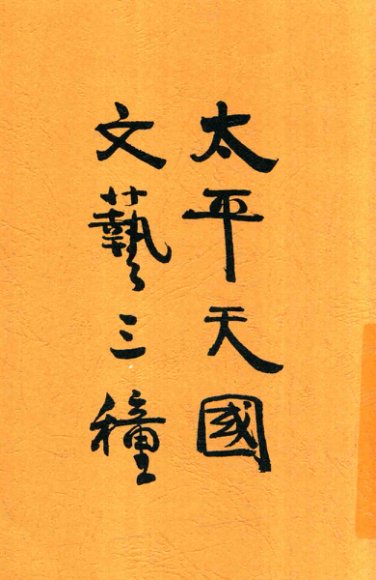 太平天國
文藝三種